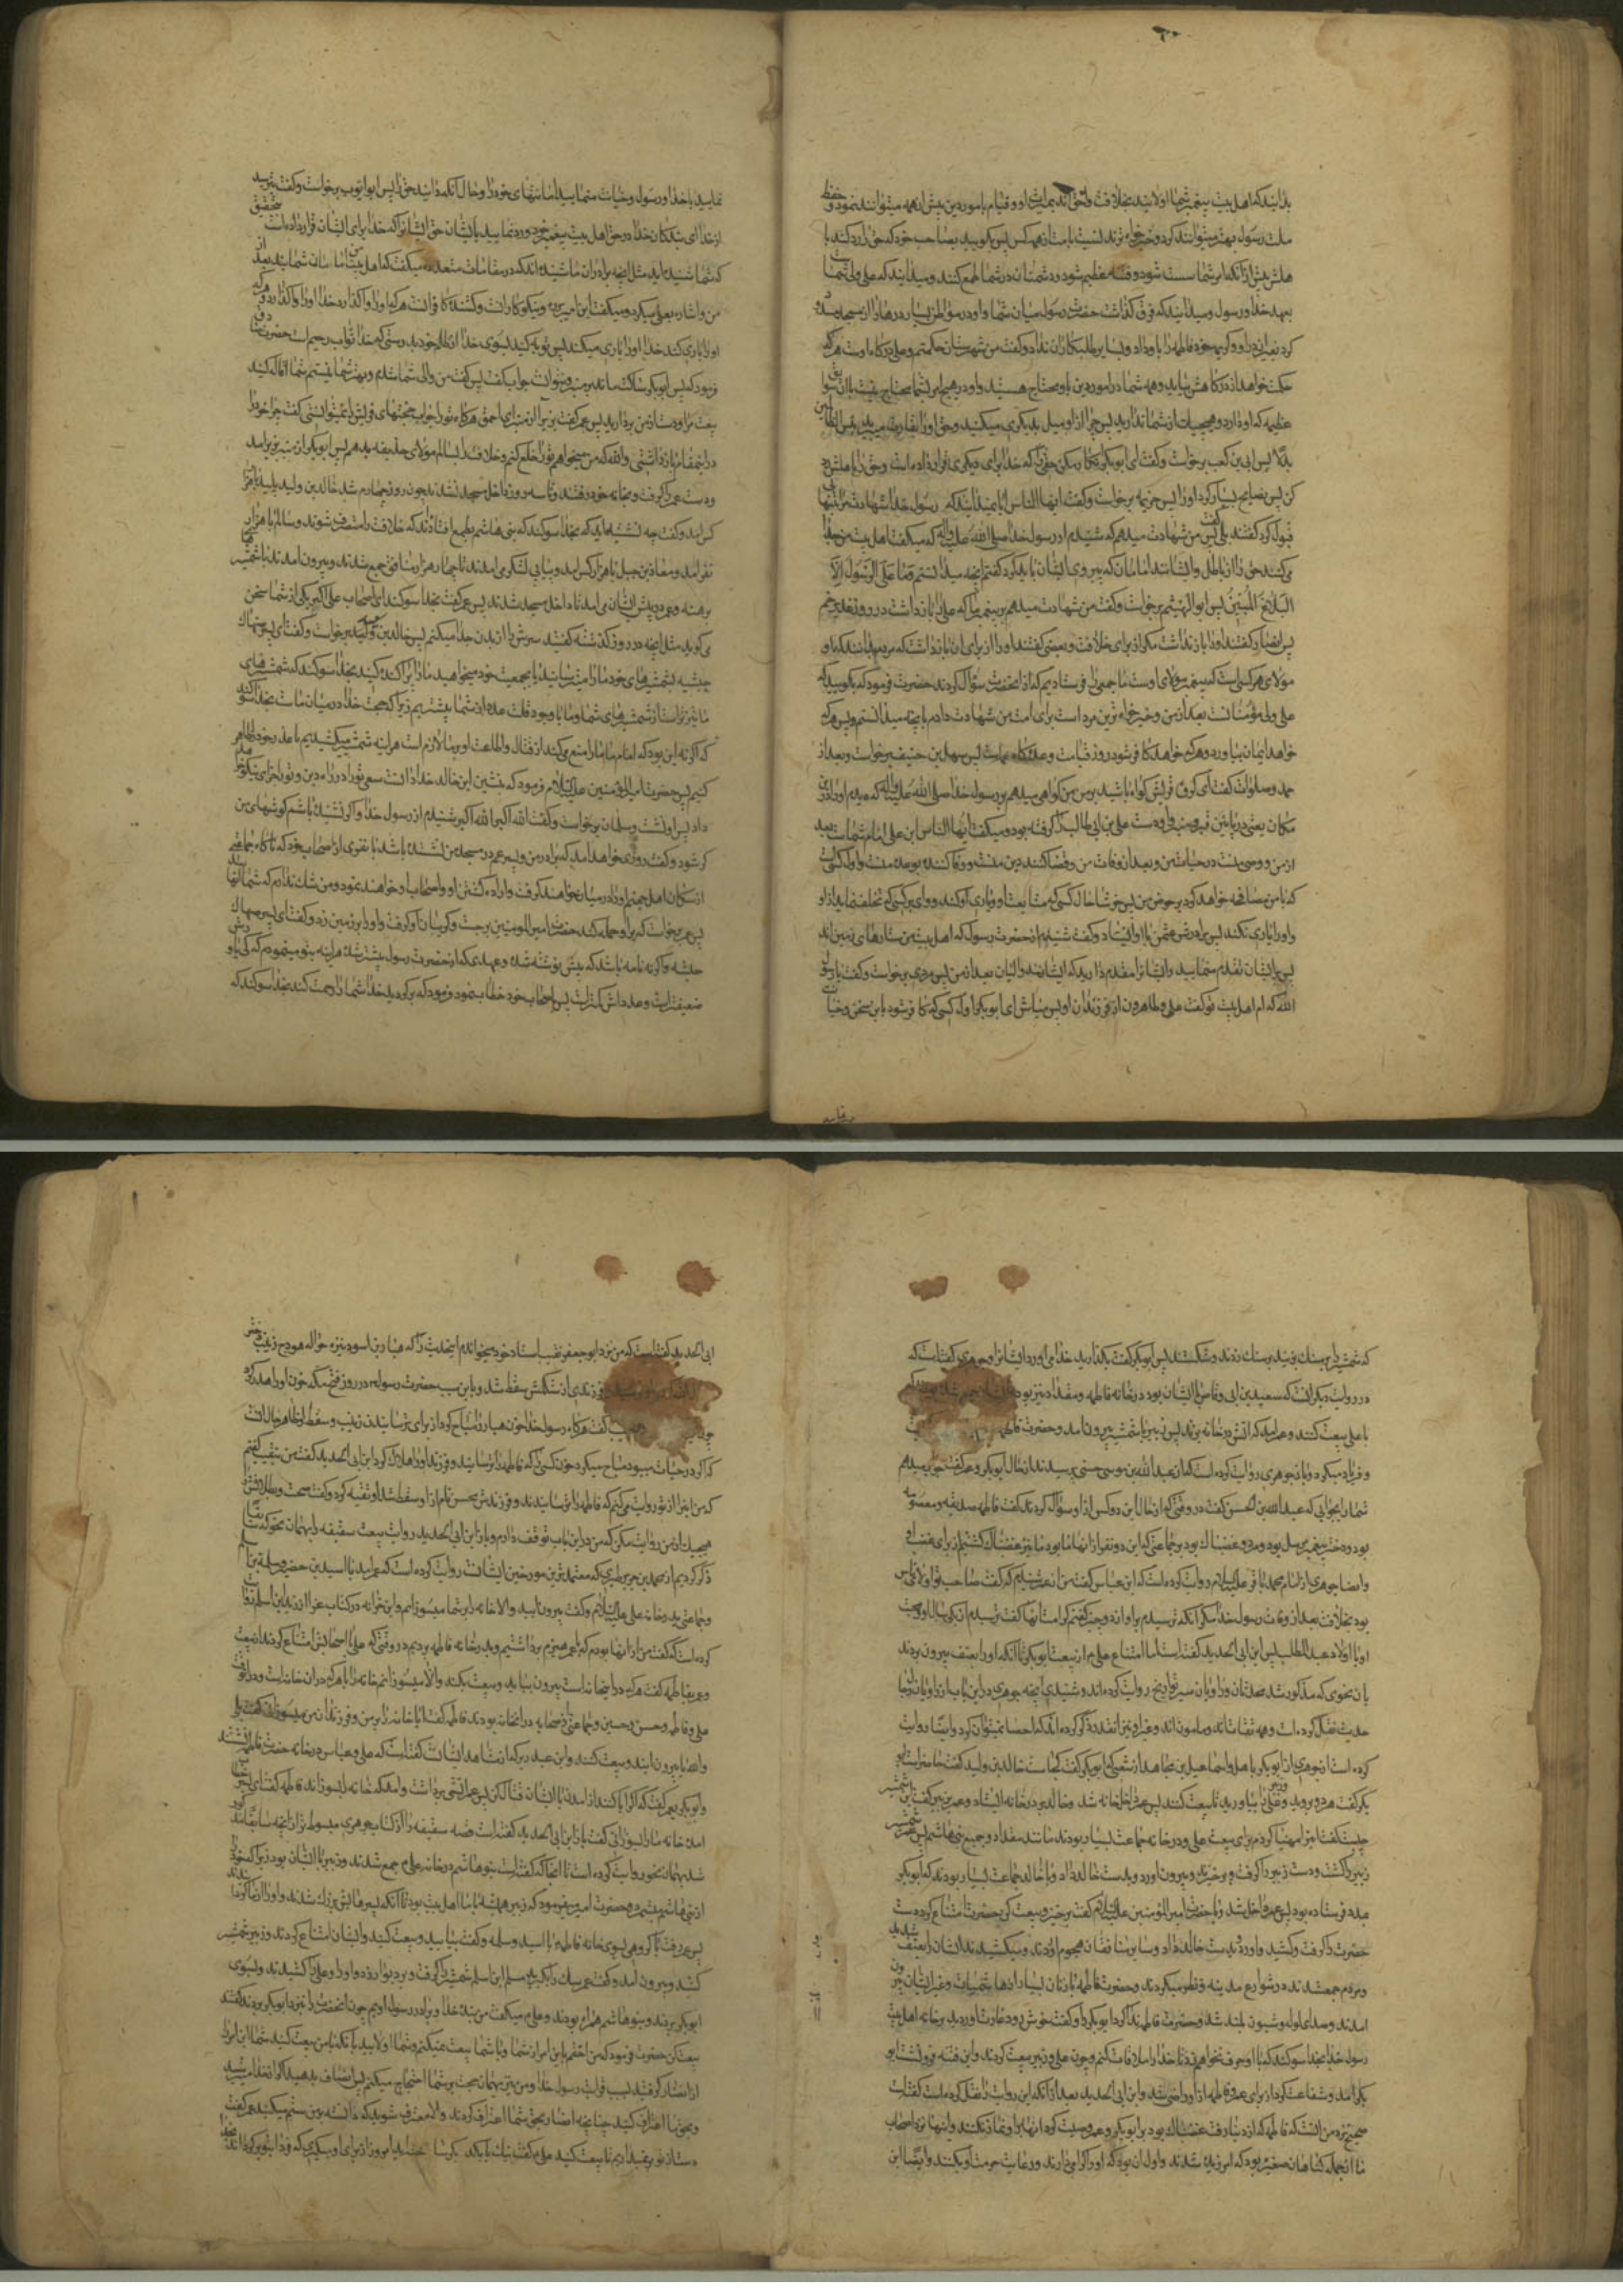 بدانید که اهل بیت پیغمبر شما اولایند بخلافت و قیام بامور دین بیش از همه میتوانند نمود و حفظ
ملت رسول بهتر میتوانند کرد و خیرخواه ترند نسبت بامت از همه کس پس بگویید بصاحب خود که حق را رد کند با
هلش پیش از آنکه امر شما سست شود و فتنه عظیم شود و دشمنان در شما طمع کنند و میدانید که علی ولی شما است
بعهد خدا و رسول و میدانید که فرق گذاشت حضرت رسول میان شما و او در مواطن بسیار درهای را از مسجد مسدود
کرد بغیر در او و کریمه خود فاطمه را باو داد و بسایر طلبکاران نداد و گفت من شهرستان حکمتم و علی درگاه اوست هر که
حکمت خواهد از درگاهش بیاید و همه شما در امور دین باو محتاج هستید و او در هیچ امر بشما محتاج نیست با آن سوابق
عظیمه که او دارد و هیچیک از شما ندارید پس چرا از او میل بدیگری میکنید و حق او را بغارت میبرید بئس للظالمین
بدلا پس ابی بن کعب برخاست و گفت ای ابوبکر انکار مکن حقی را که خدا برای دیگری قرار داده است و حق را باهلش رد
کن پس نصایح بسیار کرد او را پس خزیمه برخاست و گفت ایها الناس آیا نمیدانید که رسول خدا شهادت مرا تنها
قبول کرد گفتند بلی گفت پس من شهادت میدهم که شنیدم از رسول خدا صلی الله علیه و آله که میگفت اهل بیت من جدا
می کنند حق را از باطل و ایشانند امامان که پیروی ایشان باید کرد گفتم آنچه میدانستم و ما علی الرسول الا
البلاغ المبین پس ابو الهیثم برخاست و گفت من شهادت میدهم بر پیغمبر ما که علی را بازداشت در روز غدیر خم
پس انصار گفتند او را باز نداشت مگر از برای خلافت و بعضی گفتند او را از برای آن بازداشت که مردم بدانند که او
مولای هر کسی است که پیغمبر مولای اوست ما جمعی را فرستادیم که از آنحضرت سؤال کردند حضرت فرمود که بگویید که
علی ولی مؤمنانست بعد از من و خیرخواه ترین مردم است برای امت من شهادت دادم بآنچه میدانستم پس هر که
خواهد ایمان بیاورد و هر که خواهد کافر شود روز قیامت وعده گاه ماست پس سهل بن حنیف برخاست و بعد از
حمد و صلوات گفت ای گروه قریش گواه باشید بر من من گواهی میدهم بر رسول خدا صلی الله علیه و آله که دیدم او را در این
مکان یعنی در مابین قبر و منبر و او دست علی بن ابی طالب را گرفته بود و میگفت ایها الناس این علی امام شماست بعد
از من و وصی منست در حیات من و بعد از وفات من و قضا کننده دین منست و وفا کننده بوعده منست و اول کسی است
که با من مصافحه خواهد کرد بر حوض من پس خوشا حال کسی که متابعت او و یاری او کند و وای بر کسی که تخلف نماید از او
و او را یاری نکند پس برادرش عثمن با او ایستاد و گفت شنیدم از حضرت رسول که اهل بیت من ستارهای زمین اند
پس بر ایشان تقدم منمایید و ایشان را مقدم دارید که ایشانند والیان بعد از من پس مردی برخواست و گفت یا رسول
الله کدام اهل بیت تو گفت علی و طاهرون از فرزندان او پس مباش ای ابوبکر اول کسی که کافر شود باین سخن و خیانت
نمایید با خدا و رسول و خیانت منمایید امانتهای خود را و حال آنکه دانید حق را پس ابو ایوب برخواست و گفت بترسید
از خدا ای بندگان خدا در حق اهل بیت پیغمبر خود و رد نمایید بایشان حق ایشان را که خدا برای ایشان قرار داده است بتحقیق
که شما شنیده اید مثل آنچه برادران ما شنیده اند که در مقامات متعدده میگفت که اهل بیت من امامان شمایند بعد از
من و اشاره بعلی میکرد و میگفت این امیر برره و نیکوکارانست و کشنده کافرانست هر که او را واگذارد خدا او را واگذارد و هر که
او را یاری کند خدا او را یاری میکند پس توبه کنید بسوی خدا از ظلم خود بدرستی که خدا تواب رحیم است حضرت صادق
فرمود که پس ابوبکر ساکت ماند بر منبر و نتوانست جواب گفت پس گفت من والی شما شدم و بهتر شما نیستم شما اقاله کنید
بیعت مرا و دست از من بردارید پس عمر گفت بزیر آ از منبر ای احمق هرگاه تو را جواب حجتهای قریش را نمیتوانستی گفت چرا خود را
در این مقام بازداشتی والله که من میخواهم تو را خلع کنم و خلافت را بسالم مولای حذیفه بدهم پس ابوبکر از منبر بزیر آمد
و دست عمر را گرفت و بخانه خود رفتند و تا سه روز داخل مسجد نشدند چون روز چهارم شد خالد بن ولید پلید با هزار
کس آمد و گفت چه نشسته اید که بخدا سوگند که بنی هاشم بطمع افتاده اند که خلافت را متصرف شوند و سالم با هزار
نفر آمد و معاذ بن جبل با هزار کس آمد و پیاپی لشکر می آمدند تا چهار هزار منافق جمع شدند و بیرون آمدند با شمشیرهای
برهنه و عمر در پیش ایشان می آمد تا داخل مسجد شدند پس عمر گفت بخدا سوگند ای اصحاب علی اگر یکی از شما سخن
گوید مثل آنچه در روز گذشته گفتید سرش را از بدن جدا میکنم پس خالد بن سعید برخاست و گفت ای پسر صهاک
حبشیه بشمشیرهای خود ما را میترسانید یا بجمعیت خود میخواهید ما را پراکنده کنید بخدا سوگند که شمشیرهای
ما تیزتر است از شمشیرهای شما و ما با وجود قلت عدد از شما بیشتریم زیرا که حجت خدا در میان ماست بخدا سوگند
که اگر نه این بود که امام ما ما را منع میکند از قتال و اطاعت او بر ما لازم است هر آینه شمشیر میکشیدیم تا عذر خود را ظاهر
کنیم پس حضرت امیر المؤمنین علیه السلام فرمود که بنشین ای خالد خدا دانست سعی تو را در راه دین و تو را جزای نیکو خواهد
داد پس او نشست و سلمان برخواست و گفت الله اکبر الله اکبر شنیدم از رسول خدا و اگر نشنیده باشم گوشهای من
کر شود و گفت روزی خواهد آمد که برادر من و پسر عم در مسجد من نشسته باشد با نفری از اصحاب خود که ناگاه جماعتی
از سگان اهل جهنم او را در میان خواهند گرفت و اراده کشتن او و اصحاب او خواهند نمود و من شک ندارم که شما آنهایید
پس عمر برخواست که بر او حمله کند حضرت امیر المومنین برجست و گریبان او گرفت و او را بر زمین زد و گفت ای پسر صهاک
حبشیه و اگر نه نامه باشد که پیش نوشته شده و عهدی که از حضرت رسول پیشتر شده هر آینه بتو مینمودم که کی یاورش
ضعیفتر است و عددش کمتر است پس باصحاب خود خطاب نمود و فرمود که برگردید خدا شما را رحمت کند بخدا سوگند که
که شمشیر را بر سنگ زدند و شکستند پس ابوبکر گفت بگذارید خدا می آورد ایشان را و جوهری گفته است که
در روایت دیگر آنست که سعد بن ابی وقاص با ایشان بود در خانه فاطمه و مقداد نیز بود
با علی بیعت کنند و عمر آمد که آتش در خانه بزند پس زبیر با شمشیر بیرون آمد و حضرت فاطمه
و فریاد میکرد و باز جوهری روایت کرده است که از عبد الله بن موسی حسنی پرسیدند از حال ابوبکر و عمر گفت جواب میدهم
شما را بجوابی که عبد الله بن الحسن گفت در وقتی که از حال این دو کس از او سؤال کردند گفت فاطمه صدیقه و معصومه
بود و دختر پیغمبر مرسل بود و مرد و غضبناک بود بر جماعتی که این دو نفر از آنها بود ما نیز غضبناک گشتیم از برای غضب او
و ایضا جوهری از امام محمد باقر علیه السلام روایت کرده است که ابن عباس گفت من از عمر شنیدم که گفت صاحب تو اولای ناس
بود بخلافت بعد از وفات رسول خدا مگر آنکه ترسیدیم بر او از دو چیز گفتم کدامست آنها گفت ترسیدیم از کمی سال او و محبت
او با اولاد عبد المطلب پس ابن ابی الحدید گفته است اما امتناع علی ع از بیعت ابوبکر تا آنکه او را بعنف بیرون بردند
بآن نحوی که مذکور شد محدثان و راویان سیر و تواریخ روایت کرده اند و شنیدی آنچه جوهری در این باب از راویان
حدیث نقل کرده است و همه ثقات اند و مامون اند و غیر او نیز آنقدر ذکر کرده اند که احصا نمیتوان کرد و ایضا روایت
کرده است از جوهری
بکر گفت هر دو بروید و علی را بیاورید تا بیعت کنند پس عمر داخل خانه شد و خالد بر در خانه ایستاد و عمر بزبیر گفت این شمشیر
چیست گفت این را مهیا کرده ام برای بیعت علی و در خانه جماعت بسیار بودند مانند مقداد و جمیع بنی هاشم پس عمر شمشیر
زبیر را شکست و دست زبیر را گرفت و برخیزاند و بیرون آورد و بدست خالد داد و با خالد جماعت بسیار بودند که ابوبکر
بمدد فرستاده بود پس عمر داخل شد و با حضرت امیر المؤمنین علیه السلام گفت برخیز و بیعت کن حضرت امتناع کرد دست
حضرت را گرفت و کشید و آورد و بدست خالد داد و سایر منافقان هجوم آوردند و میکشیدند ایشان را بعنف شدید
و مردم جمع شدند در شوارع مدینه و نظر میکردند و حضرت فاطمه با زنان بسیار از هاشمیات و غیر ایشان بیرون
آمدند و صدای ولوله و شیون بلند شد و حضرت فاطمه ندا کرد ابوبکر را و گفت خوش زود غارت آوردید بر خانه اهل بیت
رسول خدا بخدا سوگند که با او حرف نخواهم زد تا خدا را ملاقات کنم و چون علی و زبیر بیعت کردند و این فتنه فرو نشست ابو
بکر آمد و شفاعت کرد از برای عمر و فاطمه از او راضی شد و ابن ابی الحدید بعد از آنکه این روایت را نقل کرده است گفته است
صحیح نزد من آنست که فاطمه که از دنیا رفت غضبناک بود بر ابوبکر و عمر و وصیت کرد آنها بر او نماز نکنند و اینها نزد اصحاب
ما از جمله گناهان صغیره بود که آمرزیده شدند و اولی آن بود که او را گرامی دارند و رعایت حرمت او بکنند و ایضا ابن
ابی الحدید گفته است که من نزد ابو جعفر نقیب استاد خود میخواندم این حدیث را که هبار بن اسود نیزه حواله هودج زینب دختر
فرزندی از شکمش سقط شد و باین سبب حضرت رسول در روز فتح مکه خون او را هدر کرد
نقیب گفت هرگاه رسول خدا خون هبار را مباح کرد از برای ترسانیدن زینب و سقط او ظاهر حال آنست
که اگر در حیات میبود مباح میکرد خون کسی را که فاطمه را ترسانید و فرزند او را هلاک کرد ابن ابی الحدید گفت من بنقیب گفتم
که من این را از تو روایت میکنم که فاطمه را ترسانیدند و فرزندش محسن نام از او سقط شد او تقیه کرد و گفت صحت و بطلانش
هیچیک از من روایت مکن که من در این باب توقف دارم و باز ابن ابی الحدید روایت بیعت سقیفه را بهمان نحو که سابقا
ذکر کردیم از محمد بن جریر طبری که معتمدترین مورخین ایشانست روایت کرده است که عمر آمد با اسید بن حضیر و سلمة بن اسلم
و جماعتی بدر خانه علی علیه السلام و گفت بیرون آیید و الا خانه را بر شما میسوزانم و ابن خزابه در کتاب غرر از زید بن اسلم روایت
کرده است که گفت من از آنها بودم که با عمر هیزم برداشتیم و بدر خانه فاطمه بردیم در وقتی که علی با اصحابش امتناع کردند از بیعت
و عمر بفاطمه گفت هر که در این خانه است بیرون بیاید و بیعت بکند و الا میسوزانم خانه را با هر که در آن خانه است و در آن وقت
علی و فاطمه و حسن و حسین و جماعتی از صحابه در آنخانه بودند فاطمه گفت آیا خانه را بر من و فرزندان من میسوزانی گفت بلی
والله تا بیرون آیند و بیعت کنند و ابن عبد ربه که از مشاهد ایشانست گفته است که علی و عباس در خانه حضرت فاطمه نشستند
و ابوبکر بعمر گفت که اگر ابا کنند از آمدن با ایشان قتال کن پس عمر آتشی برداشت و آمد که خانه را بسوزاند فاطمه گفت ای پسر خطاب
آمده خانه ما را بسوزانی گفت بلی باز ابن ابی الحدید گفته است قصه سقیفه را از کتاب جوهری مبسوط تر از آنچه سابقا مذکور
شد بهمان نحو روایت کرده است تا آنجا که گفته است بنو هاشم در خانه علی ع جمع شدند و زبیر با ایشان بود زیرا که خود را
از بنی هاشم میشمرد و حضرت امیر میفرمود که زبیر همیشه با ما اهل بیت بود تا آنکه پسرهایش بزرگ شدند و او را از ما گردانیدند
پس عمر رفت با گروهی بسوی خانه فاطمه با اسید و سلمه و گفت بیایید و بیعت کنید و ایشان امتناع کردند و زبیر شمشیر
کشید و بیرون آمد و عمر گفت سگ را بگیرید سلمة ابن اسلم شمشیر را گرفت و بر دیوار زد و او را و علی را کشیدند و بسوی
ابوبکر بردند و بنو هاشم همراه بودند و علی ع میگفت من بنده خدا و برادر رسول اویم چون آنحضرت را نزد ابوبکر بردند گفتند
بیعت کن حضرت فرمود که من احقم باین امر از شما و با شما بیعت نمیکنم و شما اولایید بآنکه با من بیعت کنید شما این امر را
از انصار گرفتید بسبب قرابت رسول خدا و من نیز بهمان حجت بر شما احتجاج میکنم پس انصاف بدهید اگر از خدا میترسید
و بحق ما اعتراف کنید چنانچه انصار بحق شما اعتراف کردند و الا معترف شوید که دانسته بر من ستم میکنید عمر گفت
دست از تو برنمیداریم تا بیعت کنید علی ع گفت